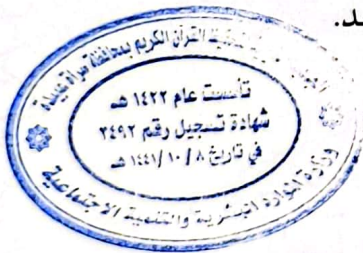 د.
لتحفيظ القرآن الكريم بمحافظة سراة عبيدة
تأسست عام ١٤٢٢ هـ
شهادة تسجيل رقم ٢٤٩٢
في تاريخ ٨ / ١٠ / ١٤٤١ هـ
وزارة الموارد البشرية والتنمية الاجتماعية